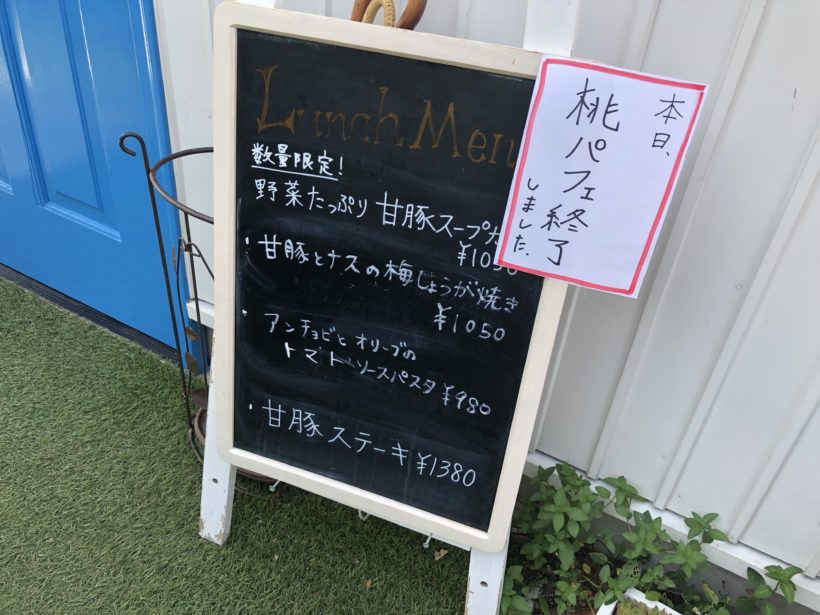 Lunch Menu
数量限定!
野菜たっぷり 甘豚スープカ
¥1050
・甘豚とナスの梅しょうが焼き
¥1050
・アンチョビとオリーブの
トマトソースパスタ ¥980
・甘豚ステーキ ¥1380
本日、
桃パフェ終了
しました。